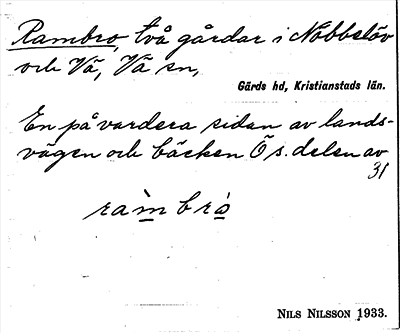 Rambro, två gårdar i Nöbbelöv
och Vä, Vä sn,
Gärds hd, Kristianstads län.
En på vardera sidan av lands-
vägen och bäcken Ö s. delen av
31
ràm brò
NILS NILSSON 1933.